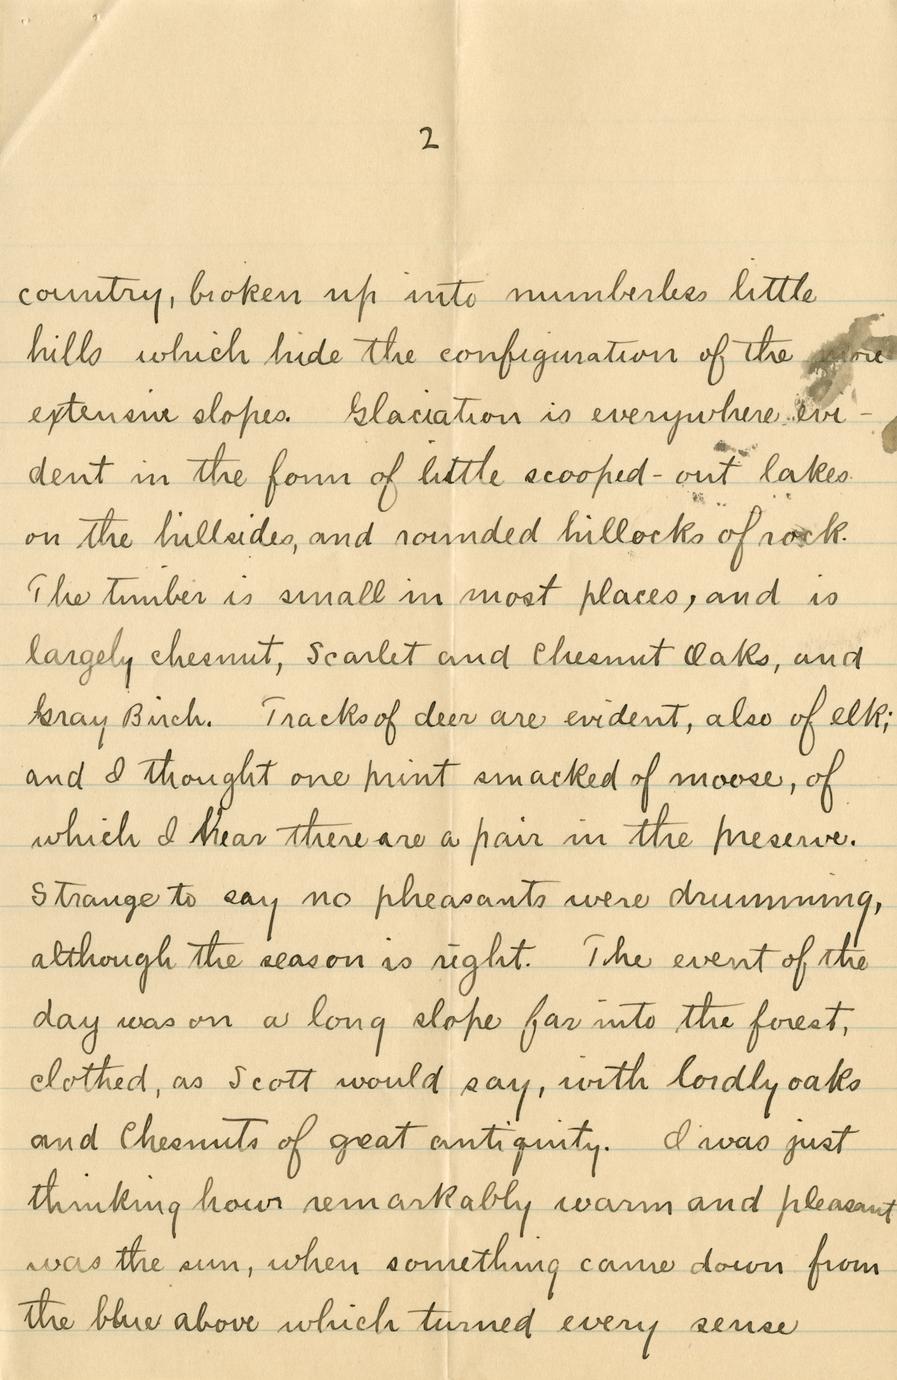 2
country, broken up into numberless little
hills which hide the configuration of the more
extensive slopes. Glaciation is everywhere evi-
dent in the form of little scooped-out lakes
on the hillsides, and rounded hillocks of rock.
The timber is small in most places, and is
largely chesnut, Scarlet and Chesnut Oaks, and
Gray Birch. Tracks of deer are evident, also of elk;
and I thought one print smacked of moose, of
which I hear there are a pair in the preserve.
Strange to say no pheasants were drumming,
although the season is right. The event of the
day was on a long slope far into the forest,
clothed, as Scott would say, with lordly oaks
and Chesnuts of great antiquity. I was just
thinking how remarkably warm and pleasant
was the sun, when something came down from
the blue above which turned every sense